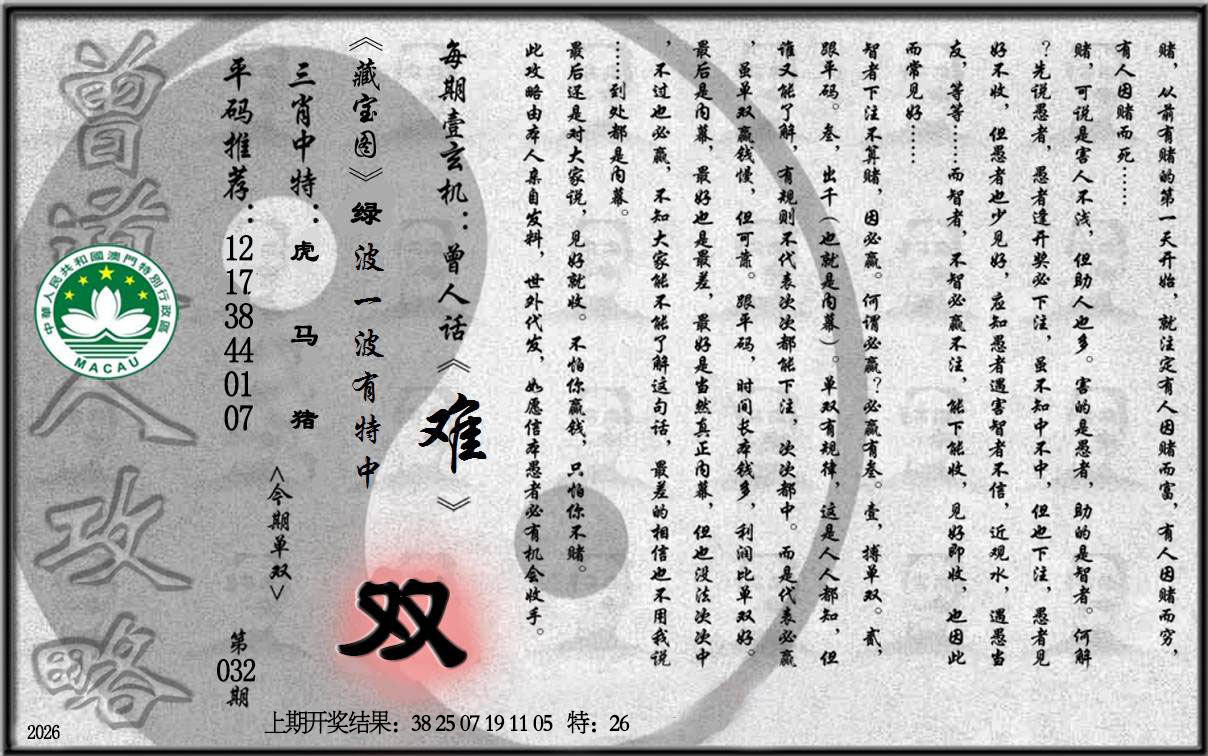 赌，从前有赌的第一天开始，就注定有人因赌而富，有人因赌而穷，
有人因赌而死……
赌，可说是害人不浅，但助人也多。害的是愚者，助的是智者。何解
？先说愚者，愚者逢开奖必下注，虽不知中不中，但也下注，愚者见
好不收，但愚者也少见好，应知愚者遇害智者不信，近观水，遇愚当
友，等等……而智者，不智必赢不注，能下能收，见好即收，也因此
而常见好……
智者下注不算赌，因必赢。何谓必赢？必赢有叁。壹，搏单双。贰，
跟平码。叁，出千（也就是内幕）。单双有规律，这是人人都知，但
谁又能了解，有规则不代表次次都能下注，次次都中。而是代表必赢
，虽单双赢钱慢，但可靠。跟平码，时间长本钱多，利润比单双好。
最后是内幕，最好也是最差，最好是当然真正内幕，但也没法次次中
，不过也必赢，不知大家能不能了解这句话，最差的相信也不用我说
……到处都是内幕。
最后还是对大家说，见好就收。不怕你赢钱，只怕你不赌。
此攻略由本人亲自发料，世外代发，如愿信本愚者必有机会收手。
每期壹玄机：曾人话《难》
《藏宝图》绿波一波有特中
双
三肖中特：虎 马 猪
<今期单双>
平码推荐：12 17 38 44 01 07
第032期
曾道人攻略
中華人民共和國澳門特別行政區
MACAU
上期开奖结果：38 25 07 19 11 05 特：26
2026